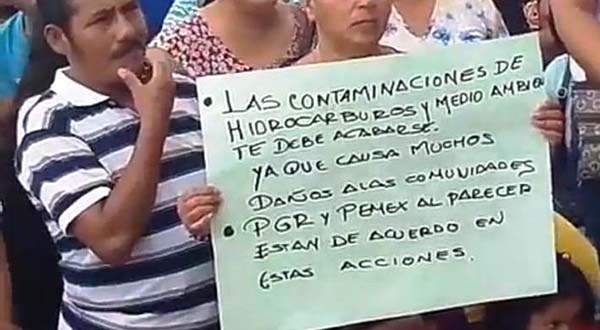 • LAS CONTAMINACIONES DE
HIDROCARBUROS Y MEDIO AMBIEN
TE DEBE ACABARSE.
YA QUE CAUSA MUCHOS
DAÑOS A LAS COMUNIDADES
• PGR Y PEMEX AL PARECER
ESTAN DE ACUERDO EN
ESTAS ACCIONES.